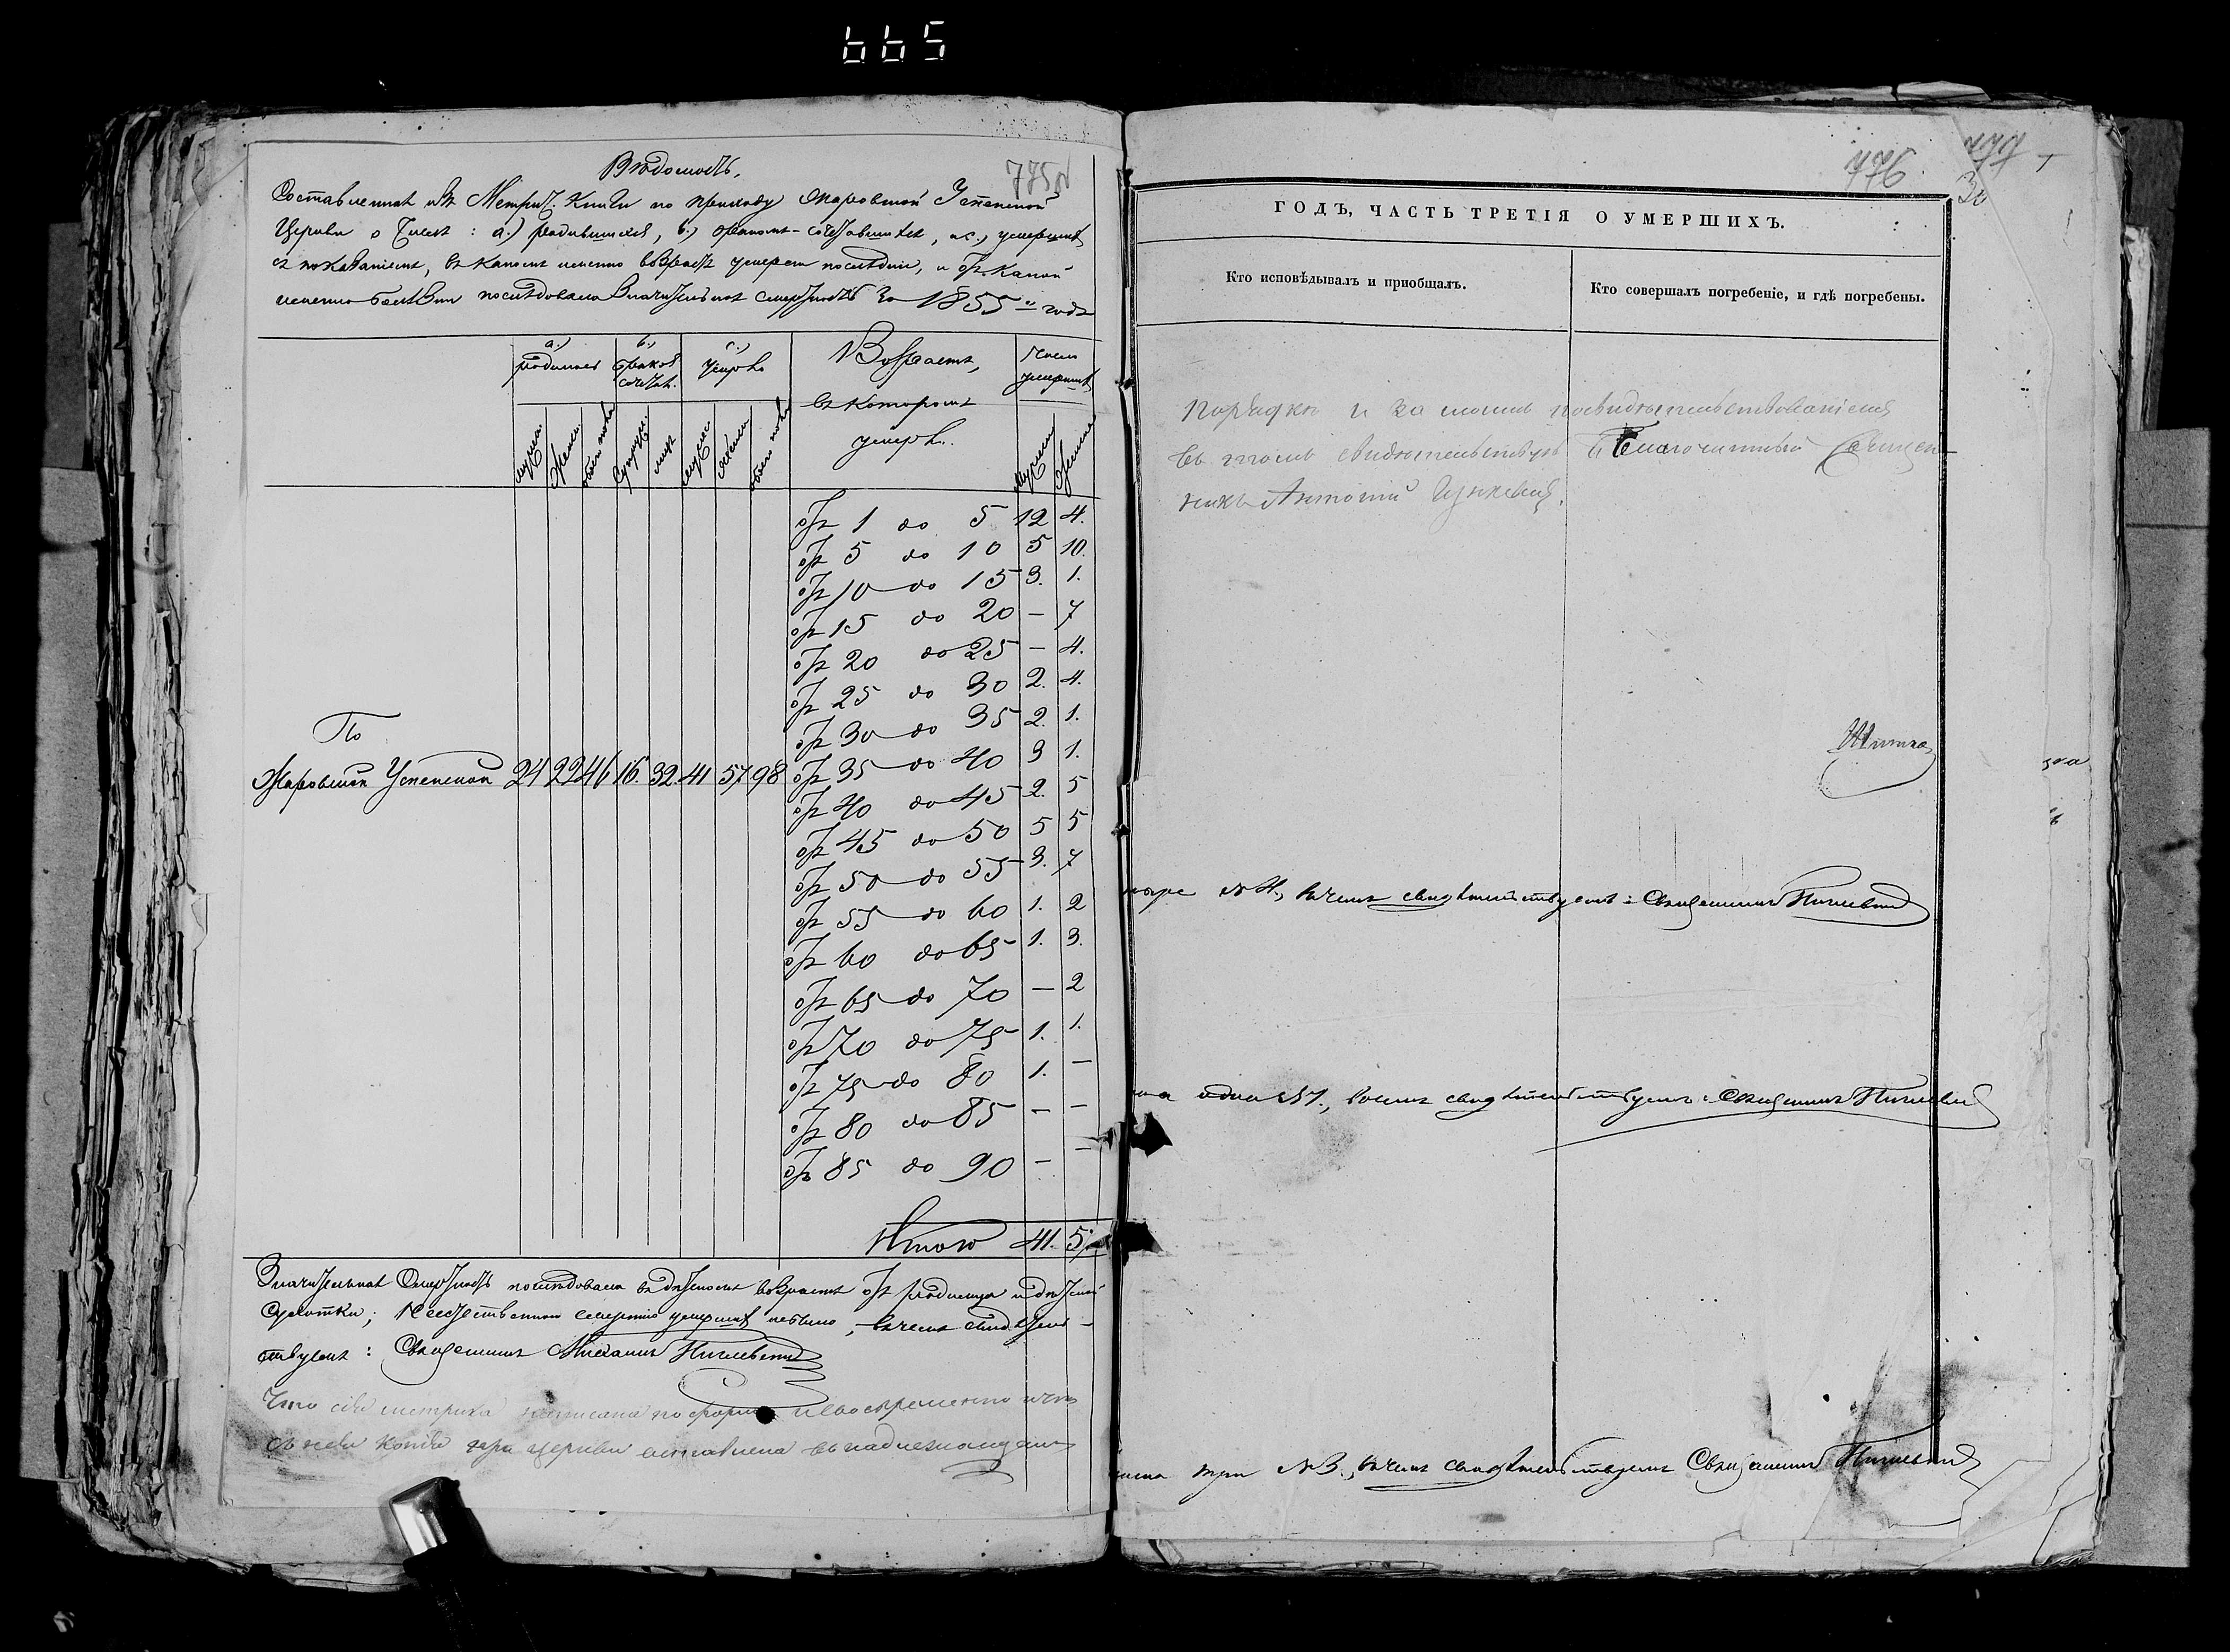 665
Вѣдомость,
775
Составленная изъ Метрич. Книги по приходу Жаровской Успенской
Церкви о Числѣ: а.) родившихся, b.) бракомъ-сочетавшихся, и с., умершихъ
съ показаніемъ, въ какомъ именно возрастѣ умерли последніе, и отъ какой
именно болѣзни последовала Значительная смертность За 1855 годъ
а.) родилось
b., браковъ сочет.
с., умерло
Возрастъ, въ которомъ умерло.
Число умершихъ
мужеска Женска обоего пола Супруж. лицъ мужеска женска обоего пола мужеска Женска
отъ 1 до 5 12 4.
отъ 5 до 10 5 10.
отъ 10 до 15 3. 1.
отъ 15 до 20 – 7
отъ 20 до 25 – 4.
отъ 25 до 30 2. 4.
отъ 30 до 35 2. 1.
По
Жаровской Успенской 24 22 46 16. 32. 41 57 98
отъ 35 до 40 3 1.
отъ 40 до 45 2. 5
отъ 45 до 50 5 5
отъ 50 до 55 3. 7
отъ 55 до 60 1. 2
отъ 60 до 65 1. 3.
отъ 65 до 70 – 2
отъ 70 до 75 1. 1.
отъ 75 до 80 1. –
отъ 80 до 85 – –
отъ 85 до 90 – –
Итого 41. 5
Значительная Смертность последовала въ дѣтскомъ возрастѣ отъ родимца и дѣтской
Сухотки; Неестественною смертію умершихъ небыло, въ чемъ свидѣтель-
ствуемъ: Священникъ Михаилъ
Что сія метрика написана по формѣ и своевременно и что
съ нея копія при церкви оставлена въ надлежащемъ
776.
ГОДЪ, ЧАСТЬ ТРЕТІЯ О УМЕРШИХЪ.
Кто исповѣдывалъ и пріобщалъ.
Кто совершалъ погребеніе, и гдѣ погребены.
порядкѣ и за моимъ посвидѣтельствованіемъ
въ томъ свидѣтельствую Благочинный Священ-
никъ Антоній
№ 4., въ чемъ свидѣтельствуемъ: Священникъ
одна №1., въ чемъ свидѣтельствуемъ: Священникъ
три №3., въ чемъ свидѣтельствуемъ Священникъ